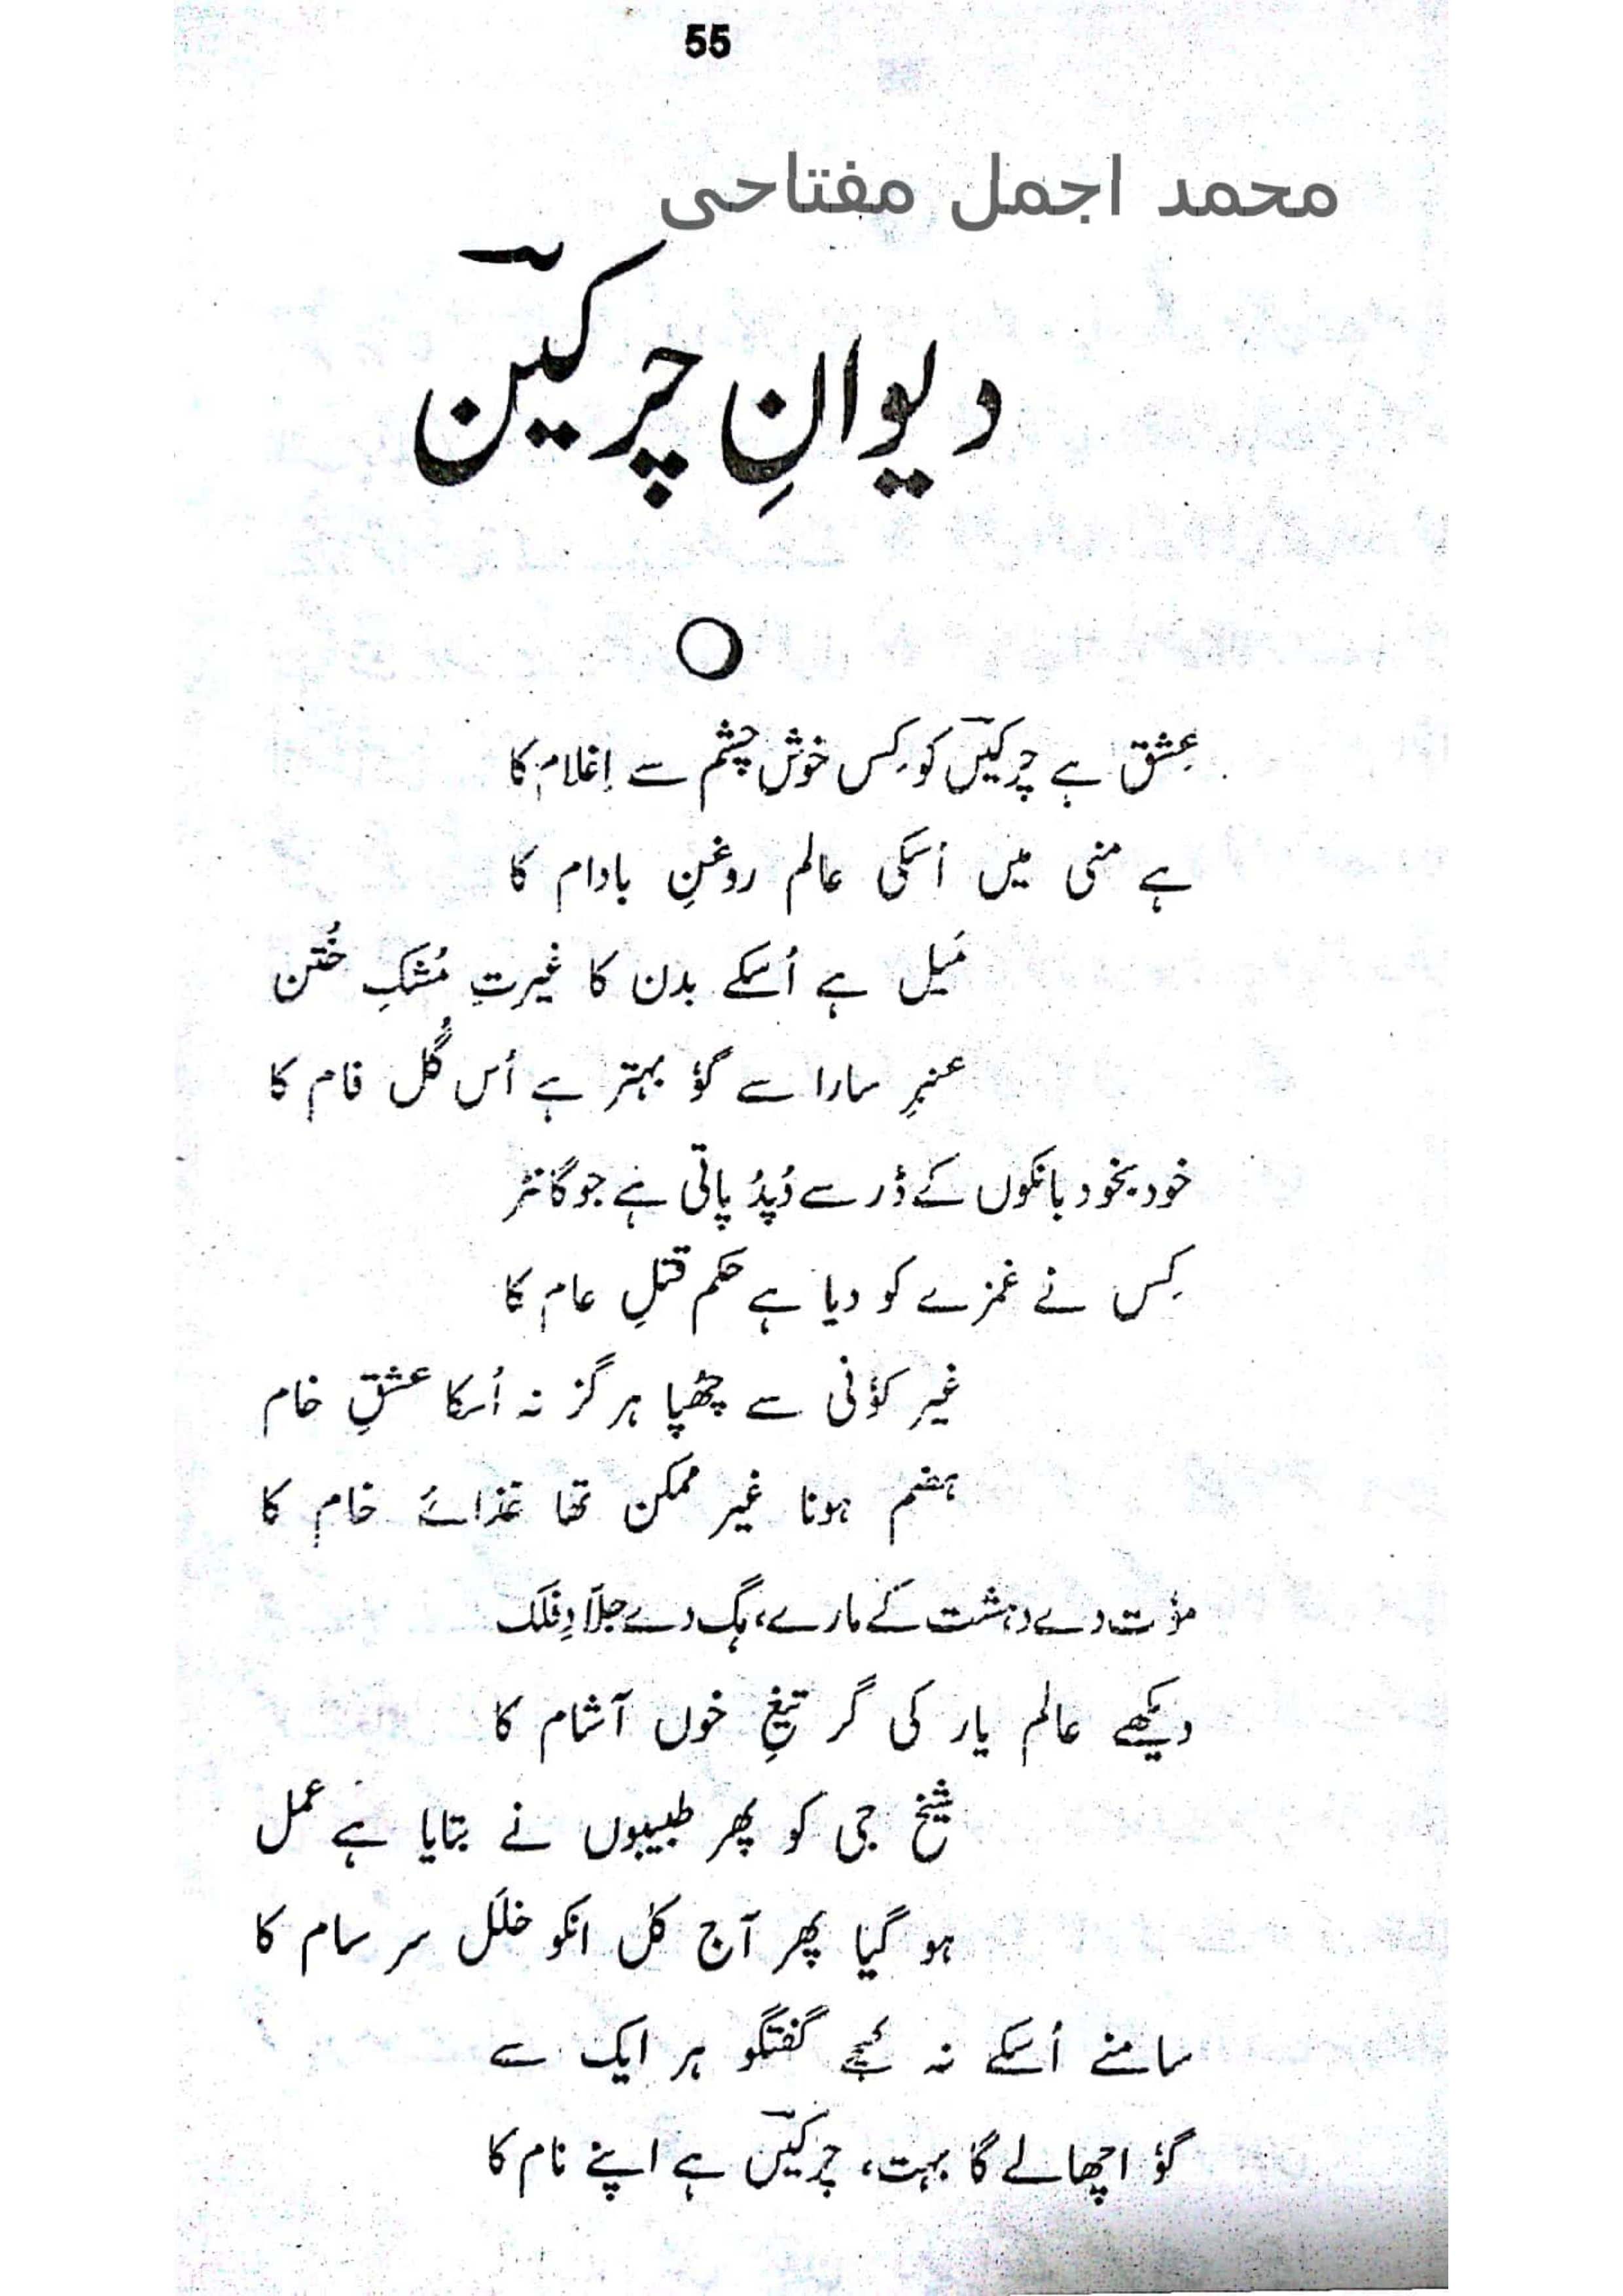 55
محمد اجمل مفتاحی
دیوانِ چرکینؔ
عِشق ہے چرکیںؔ کو کِس خوش چشم سے اِغلام کا
ہے منی میں اُسکی عالم روغنِ بادام کا
مَیل ہے اُسکے بدن کا غیرتِ مُشکِ خُتن
عنبرِ سارا سے گؤ بہتر ہے اُس گُل فام کا
خود بخود بانکوں کے ڈر سے دُپدُ پاتی ہے جو گانڑ
کِس نے غمزے کو دیا ہے حکم قتلِ عام کا
غیر کؤنی سے چھُپا ہرگز نہ اُسکا عشقِ خام
ہضم ہونا غیر ممکن تھا غذائے خام کا
مؤت دے دہشت کے مارے، ہگ دے جلّادِ فلک
دیکھے عالم یار کی گر تیغِ خوں آشام کا
شیخ جی کو پھر طبیبوں نے بتایا ہے عمل
ہو گیا پھر آج کل انکو خلَل سر سام کا
سامنے اُسکے نہ کیجے گفتگو ہر ایک سے
گؤ اچھالے گا بہت، چرکیںؔ ہے اپنے نام کا